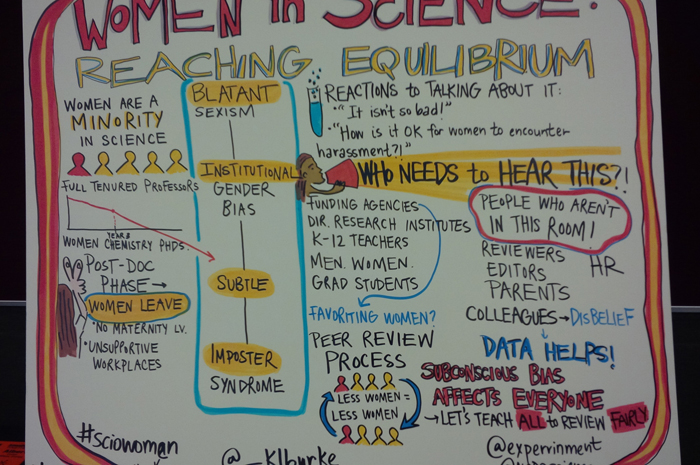 WOMEN in SCIENCE:
REACHING EQUILIBRIUM
WOMEN ARE A
MINORITY
IN SCIENCE
FULL TENURED PROFESSORS
YEARS
WOMEN CHEMISTRY PHDS.
POST-DOC
PHASE →
WOMEN LEAVE
• NO MATERNITY LV.
• UNSUPPORTIVE
WORKPLACES
#sciowoman
BLATANT
SEXISM
INSTITUTIONAL
GENDER
BIAS
SUBTLE
IMPOSTER
SYNDROME
REACTIONS to TALKING ABOUT IT:
• "It isn't so bad!"
• "How is it OK for women to encounter
harassment?!"
WHO NEEDS to HEAR THIS?!
FUNDING AGENCIES
DIR. RESEARCH INSTITUTES
K-12 TEACHERS
MEN. WOMEN.
GRAD STUDENTS
FAVORITING WOMEN?
PEER REVIEW
PROCESS
LESS WOMEN =
LESS WOMEN
PEOPLE WHO AREN'T
IN THIS ROOM!
REVIEWERS
EDITORS
HR
PARENTS
COLLEAGUES → DISBELIEF
DATA HELPS!
SUBCONSCIOUS BIAS
AFFECTS EVERYONE
→ LET'S TEACH ALL to REVIEW FAIRLY
@_klburke
@experrinment